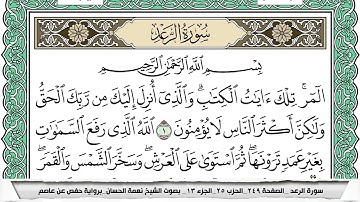 سورة الرعد
بسم الله الرحمن الرحيم
الٓمٓرۚ تِلْكَ ءَايَٰتُ ٱلْكِتَٰبِۗ وَٱلَّذِىٓ أُنزِلَ إِلَيْكَ مِن رَّبِّكَ ٱلْحَقُّ
وَلَٰكِنَّ أَكْثَرَ ٱلنَّاسِ لَا يُؤْمِنُونَ ١ ٱللَّهُ ٱلَّذِى رَفَعَ ٱلسَّمَٰوَٰتِ
بِغَيْرِ عَمَدٍ تَرَوْنَهَاۖ ثُمَّ ٱسْتَوَىٰ عَلَى ٱلْعَرْشِۖ وَسَخَّرَ ٱلشَّمْسَ وَٱلْقَمَرَۖ
سورة الرعد _ الصفحة ٢٤٩_ الحزب ٢٥_ الجزء ١٣_ بصوت الشيخ نعمة الحسان_ برواية حفص عن عاصم